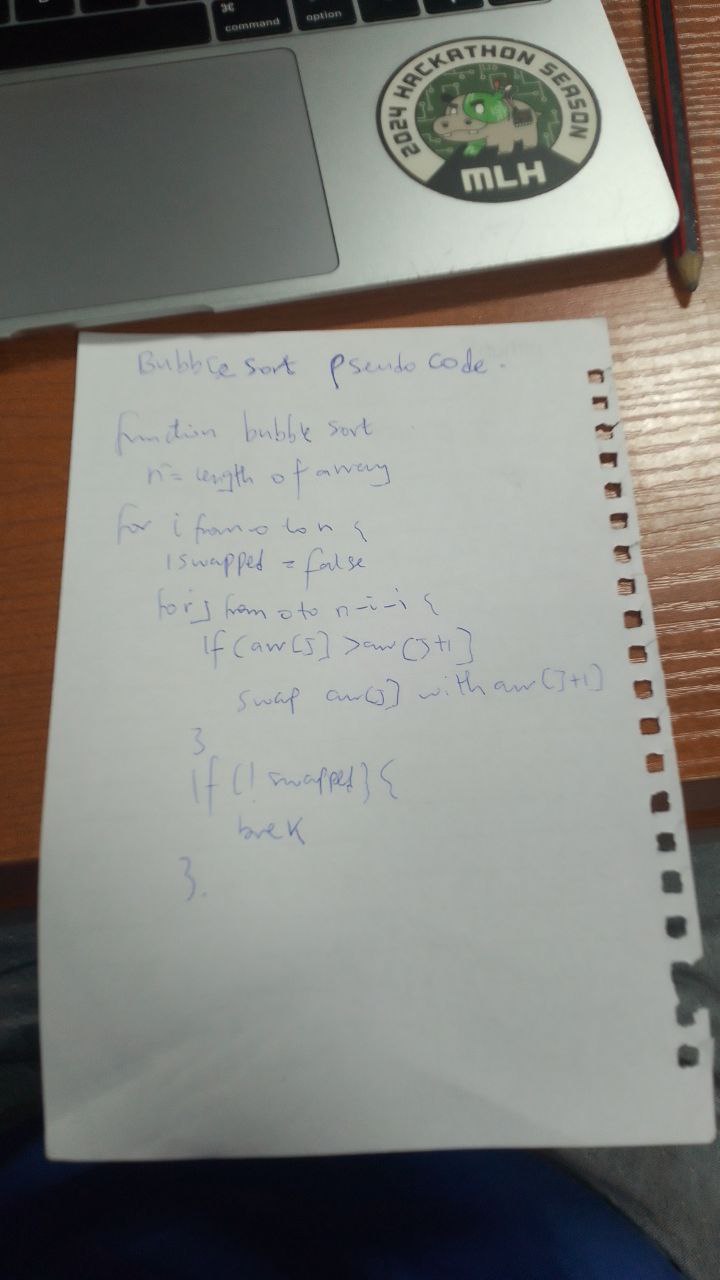 ⌘
command
option
2024 HACKATHON SEASON
MLH
Bubble sort pseudo code.
function bubble sort
n = length of array
for i from 0 to n {
iswapped = false
for j from 0 to n-i-i {
If (arr[J] > arr[J+1]
swap arr[J] with arr[J+1]
}
If (! swapped) {
break
}.